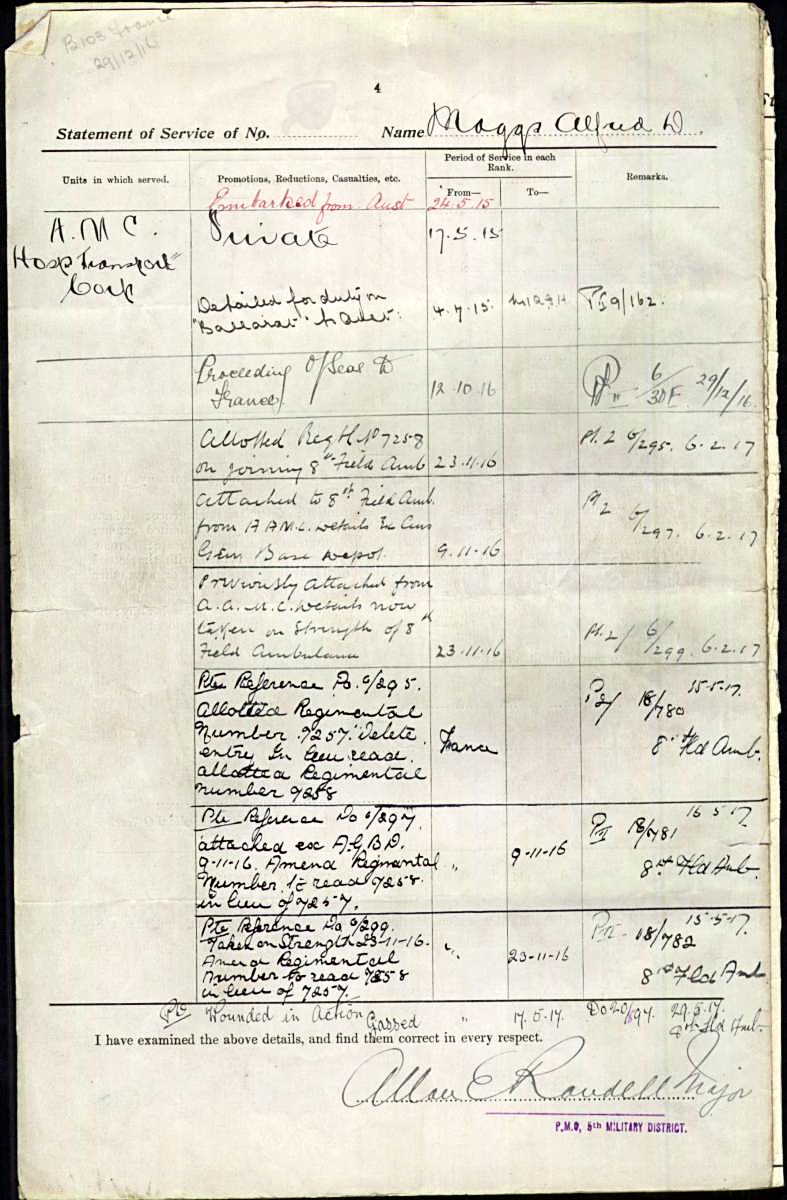 B103 France
29/12/16
4
Statement of Service of No. Name Maggs Alfred D.
Units in which served. Promotions, Reductions, Casualties, etc. Period of Service in each Rank. Remarks.
From— To—
Embarked from Aust 24.5.15
A.M.C. Private 17.5.15
Hosp Transport
Corp
Detailed for duty on
"Ballarat" to Aust: 4.7.15 PII 9/162.
Proceeding O/Seas
France 12.10.16 6/3DE 29/12/16
Allotted Regtl No 7258
on joining 8th Field Amb 23.11.16 Pt. 2 6/295. 6.2.17
Attached to 8th Field Amb.
from A.A.M.C. Details
Base Depot. 9.11.16 Pt 2 6/297. 6.2.17
Previously attached from
A.A.M.C. Details now
taken on Strength of 8th
Field Ambulance 23.11.16 Pt. 2/ 6/299 6.2.17
Pte Reference Do. 6/295.
Allotted Regimental
Number 7257. Delete
entry In lieu read.
allotted Regimental
number 7258 France 18/780 15.5.17.
8th Fld Amb.
Pte Reference Do 6/297.
attached ex A.G.B.D.
9-11-16. Amend Regimental
Number to read 7258.
in lieu of 7257. " 9-11-16 PII 18/781 16.5.17.
8th Fld Amb.
Pte Reference Do 6/299.
Taken on Strength 23-11-16.
Amend Regimental
Number to read 7258
in lieu of 7257. " 23-11-16 PII 18/782 15-5-17.
8th Fld Amb
Pte Wounded in Action Gassed " 17.5.17. Do 20/897. 29.5.17.
8th Fld Amb.
I have examined the above details, and find them correct in every respect.
Allan E Randell Major
P.M.O, 5th MILITARY DISTRICT.